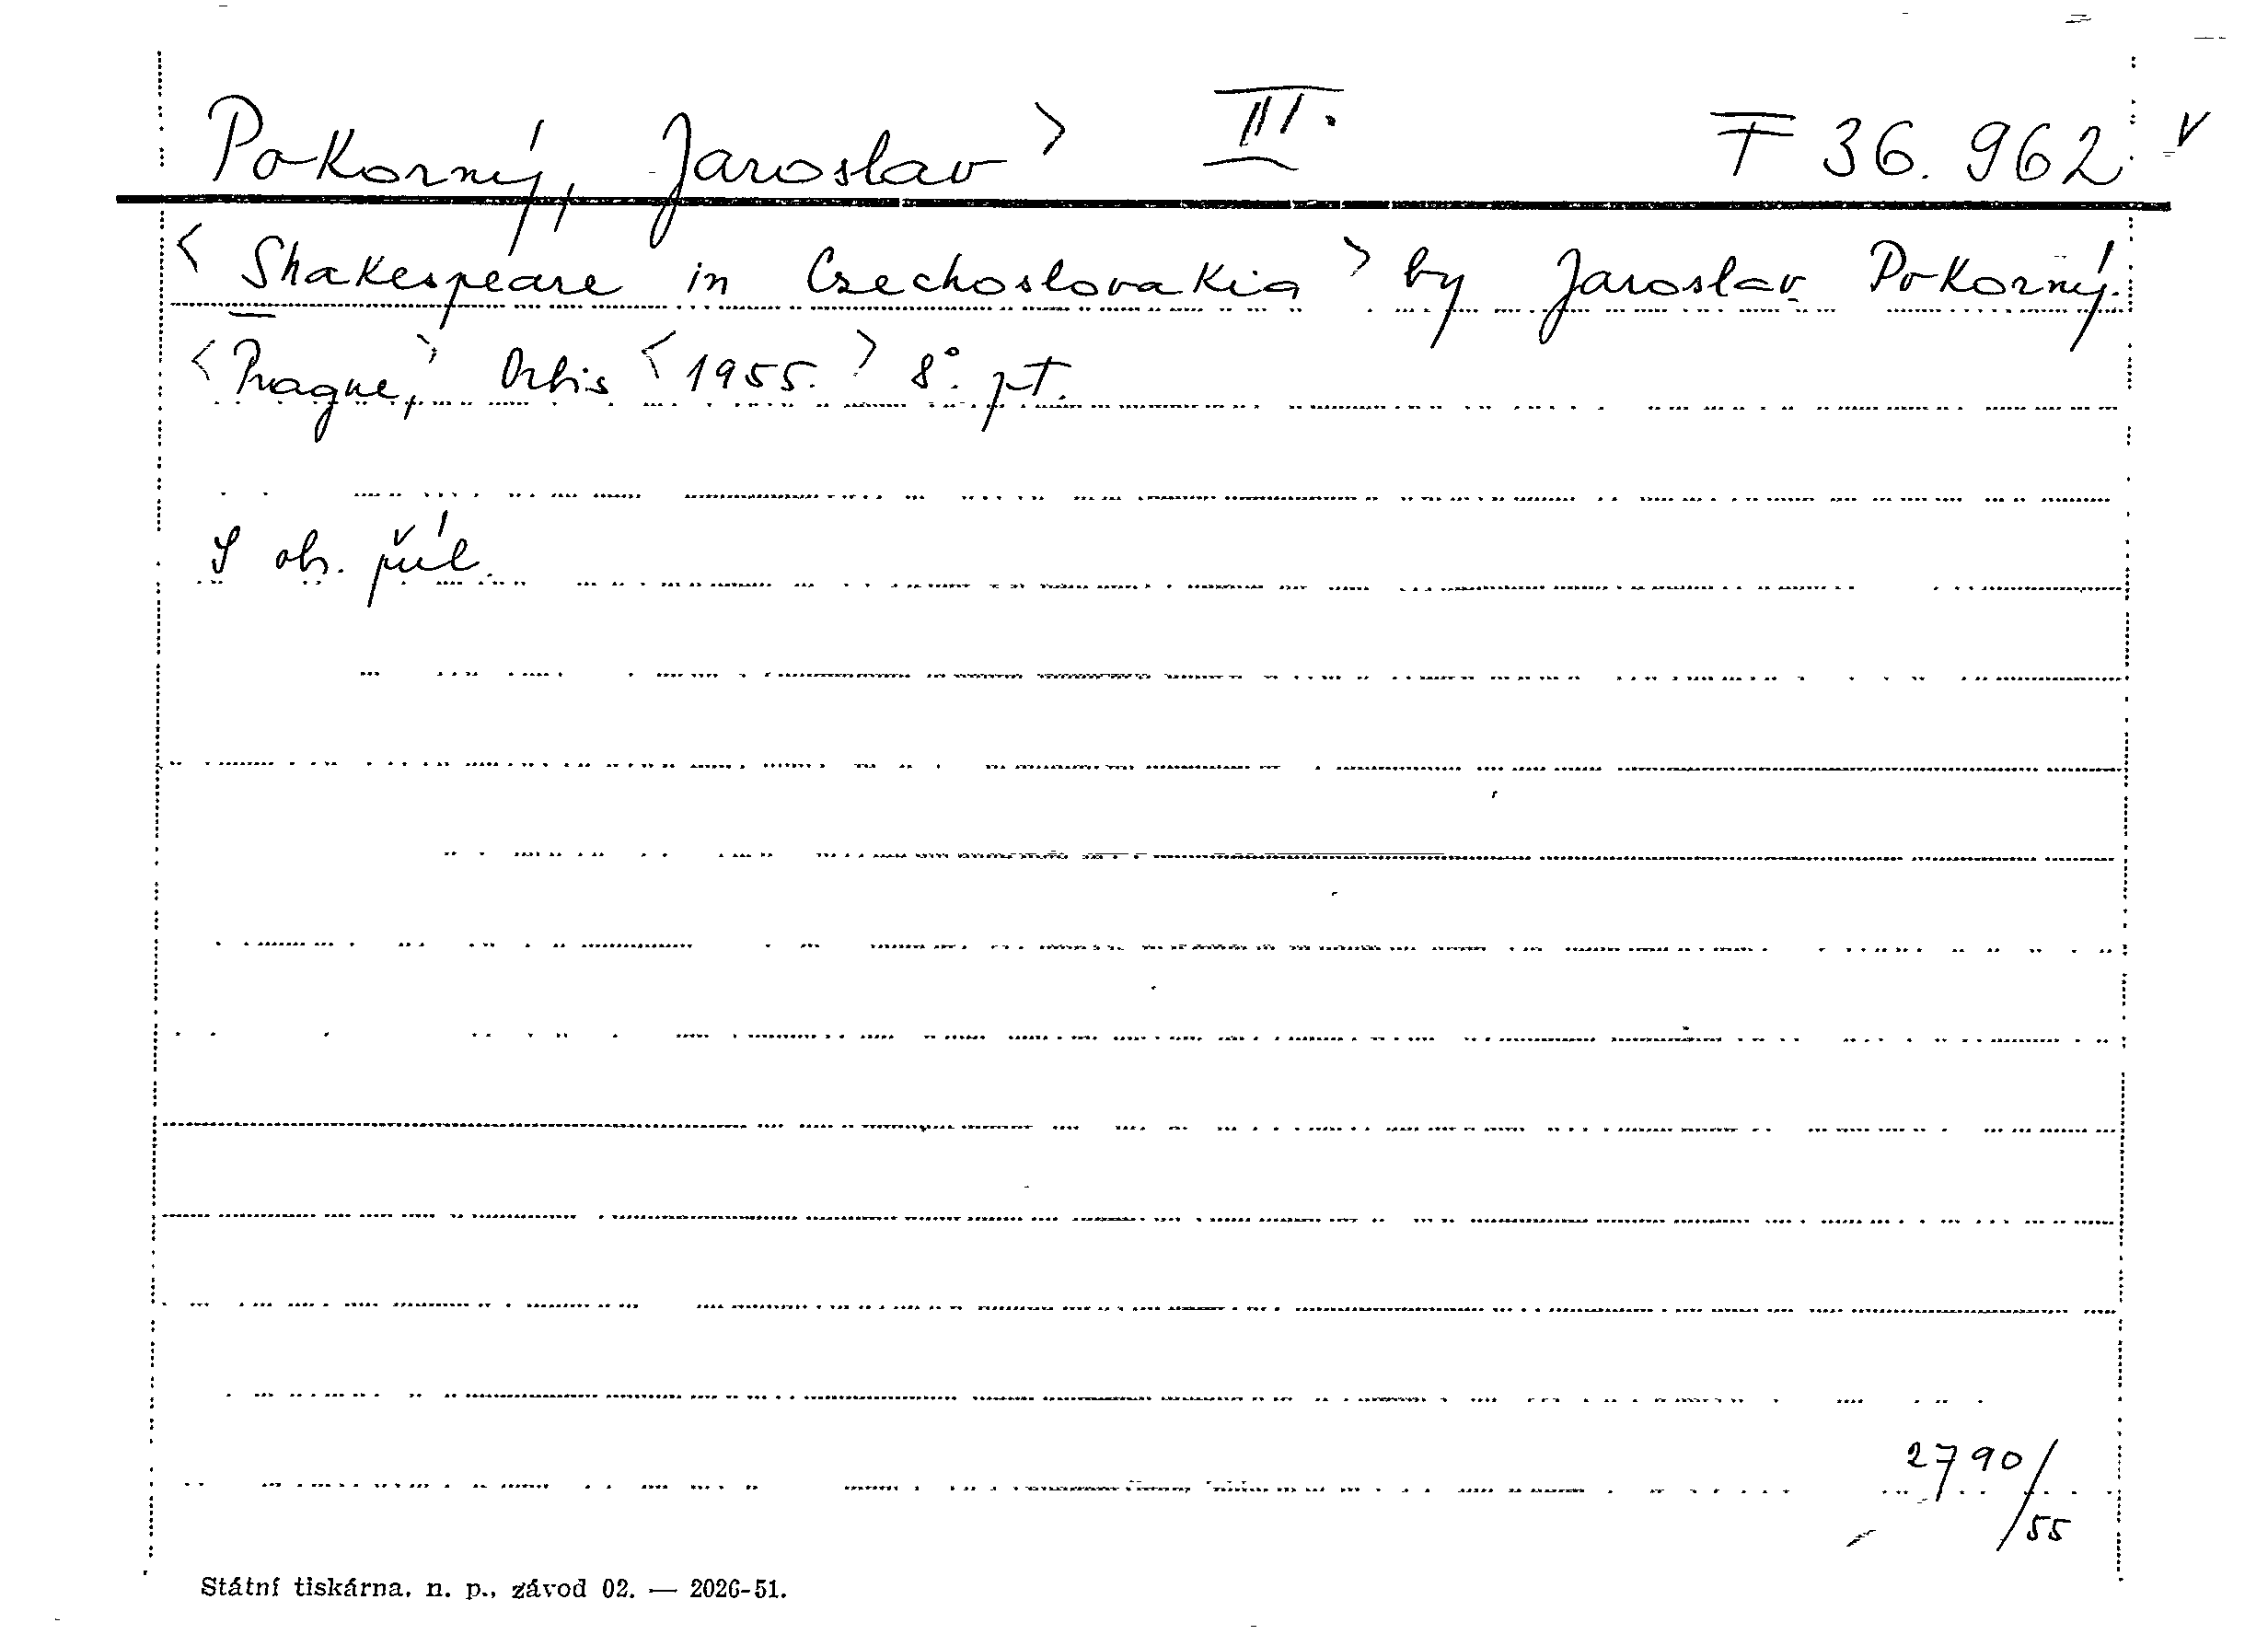 Pokorný, Jaroslav > III. F 36.962 v
< Shakespeare in Czechoslovakia > by Jaroslav Pokorný.
< Prague, > Orbis < 1955. > 8°. pt.
S obr. příl.
2790/
/55
Státní tiskárna, n. p., závod 02. — 2026-51.